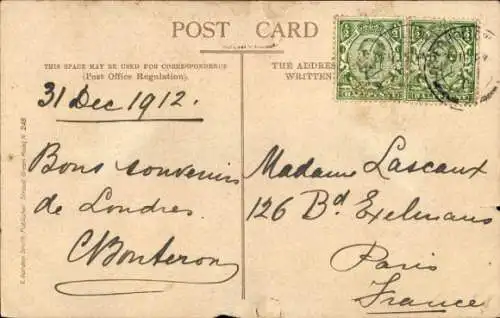 POST CARD
THIS SPACE MAY BE USED FOR CORRESPONDENCE
(Post Office Regulation).
THE ADDRESS
WRITTEN
31 Dec 1912.
Bons souvenirs
de Londres
CBonteron
Madame Lascaux
126 Bd Exelmans
Paris
France